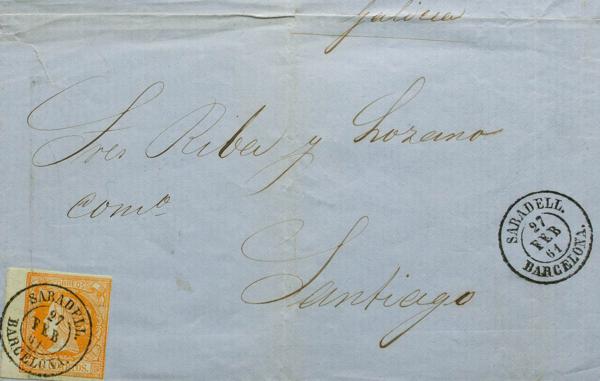 Galicia
Sres Riba y Lozano
como
Santiago
SABADELL.
27
FEB
61
BARCELONA.
CORREOS
SABADELL.
27
FEB
61
BARCELONA.